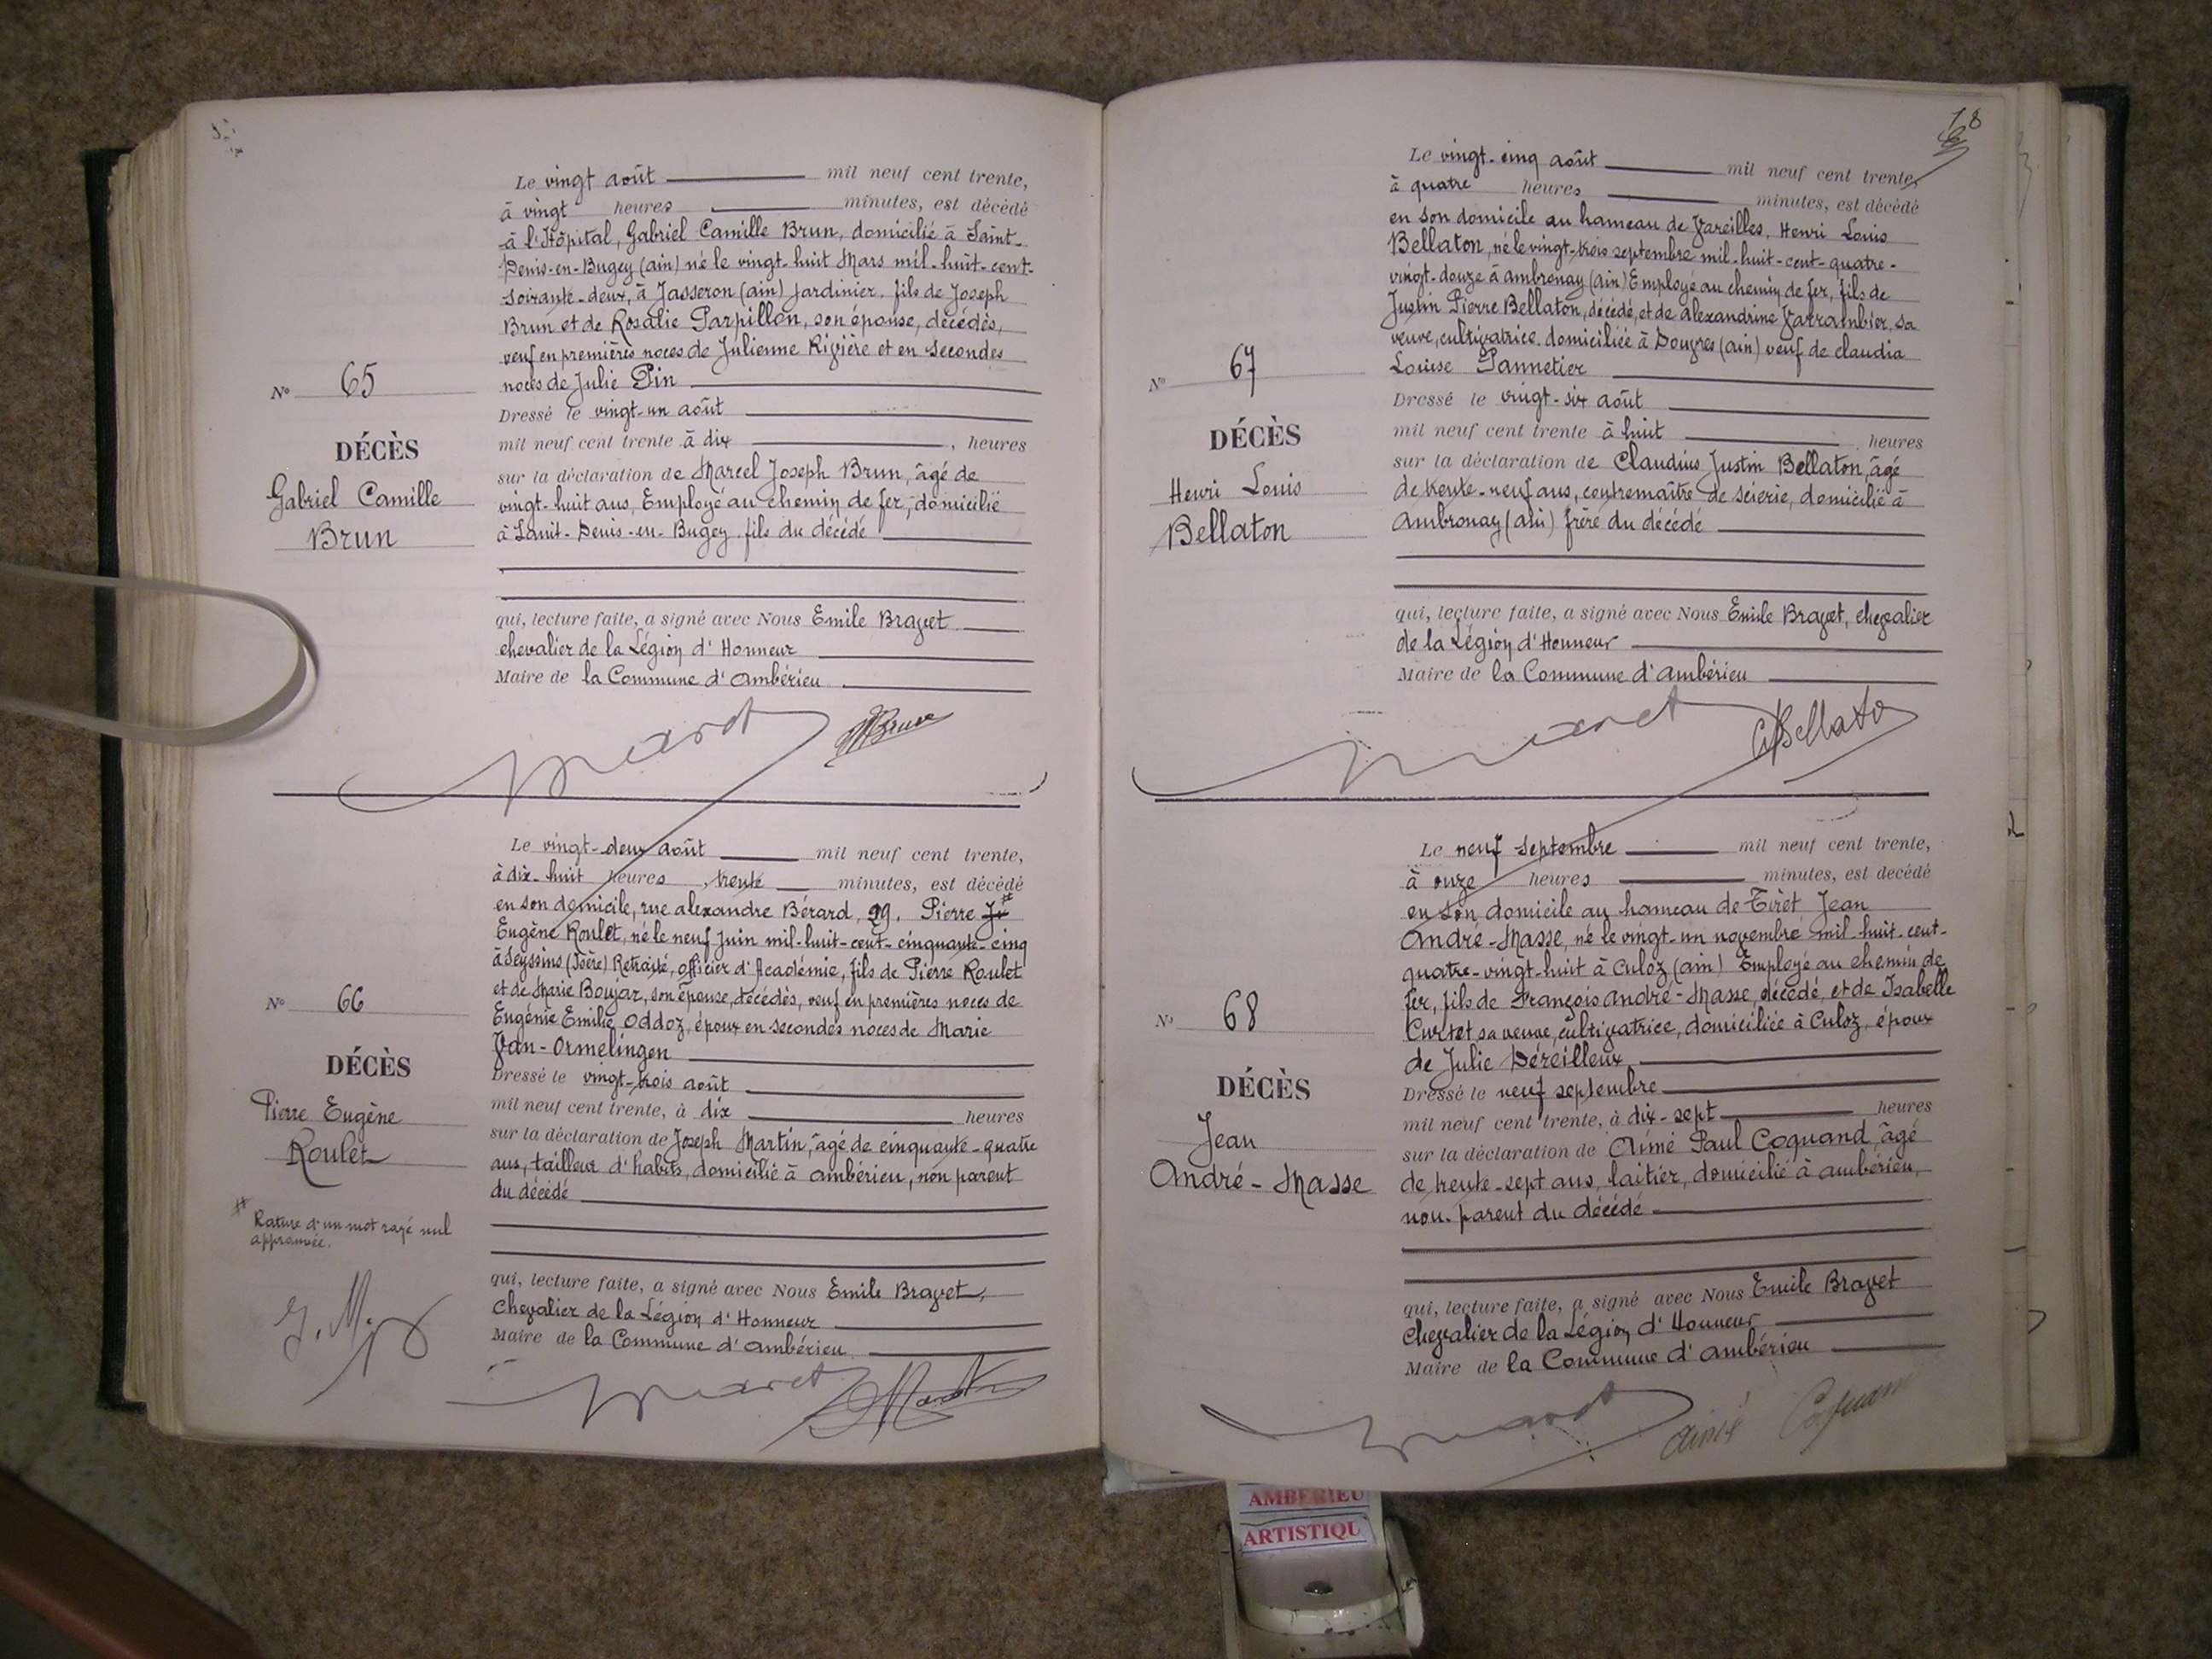 Le vingt août mil neuf cent trente,
à vingt heures minutes, est décédé
à l'Hôpital, Gabriel Camille Brun, domicilié à Saint-
Denis-en-Bugey (ain) né le vingt-huit Mars mil-huit-cent-
soixante-deux, à Jasseron (ain) Jardinier, fils de Joseph
Brun et de Rosalie Parpillon, son épouse, décédés,
veuf en premières noces de Julienne Rivière et en secondes
noces de Julie Pin
Dressé le vingt-un août
mil neuf cent trente à dix, heures
sur la déclaration de Marcel Joseph Brun, âgé de
vingt-huit ans, Employé au chemin de fer, domicilié
à Saint-Denis-en-Bugey, fils du décédé
qui, lecture faite, a signé avec Nous Emile Bravet
chevalier de la Légion d'Honneur
Maire de la Commune d'Ambérieu
Nº 65
DÉCÈS
Gabriel Camille
Brun
Brun
Le vingt-deux août mil neuf cent trente,
à dix-huit heures, trente minutes, est décédé
en son domicile, rue alexandre Bérard, 29. Pierre
Eugène Roulet, né le neuf Juin mil-huit-cent-cinquante-cinq
à Seyssins (Isère) Retraité, officier d'Académie, fils de Pierre Roulet
et de Marie Boujar, son épouse, décédés, veuf en premières noces de
Eugénie Emilie Oddoz, époux en secondes noces de Marie
Van-Ormelingen
Dressé le vingt-trois août
mil neuf cent trente, à dix heures
sur la déclaration de Joseph Martin, âgé de cinquante-quatre
ans, tailleur d'habits, domicilié à ambérieu, non parent
du décédé
qui, lecture faite, a signé avec Nous Emile Bravet,
Chevalier de la Légion d'Honneur
Maire de la Commune d'ambérieu
Nº 66
DÉCÈS
Pierre Eugène
Roulet
Rature d'un mot rayé nul
approuvée.
Martin
18
Le vingt-cinq août mil neuf cent trente,
à quatre heures minutes, est décédé
en son domicile au hameau de Vareilles, Henri Louis
Bellaton, né le vingt-trois septembre mil-huit-cent-quatre-
vingt-douze à ambronay (ain) Employé au chemin de fer, fils de
Justin Pierre Bellaton, décédé, et de Alexandrine Varrambier, sa
veuve, cultivatrice, domiciliée à Douvres (ain) veuf de claudia
Louise Pannetier
Dressé le vingt-six août
mil neuf cent trente à huit heures
sur la déclaration de Claudius Justin Bellaton, âgé
de trente-neuf ans, contremaître de scierie, domicilié à
Ambronay (ain) frère du décédé
qui, lecture faite, a signé avec Nous Emile Bravet, chevalier
de la Légion d'Honneur
Maire de la Commune d'ambérieu
Nº 67
DÉCÈS
Henri Louis
Bellaton
Bellaton
Le neuf septembre mil neuf cent trente,
à onze heures minutes, est decédé
en son domicile au hameau de Tiret Jean
André-Masse, né le vingt-un novembre mil-huit-cent-
quatre-vingt-huit à Culoz (ain) Employé au chemin de
fer, fils de François André-Masse, décédé, et de Isabelle
Curtet sa veuve, cultivatrice, domiciliée à Culoz, époux
de Julie Déreilleux
Dressé le neuf septembre
mil neuf cent trente, à dix-sept heures
sur la déclaration de Aimé Paul Coquand, âgé
de trente-sept ans, laitier, domicilié à ambérieu,
non-parent du décédé
qui, lecture faite, a signé avec Nous Emile Bravet
Chevalier de la Légion d'Honneur
Maire de la Commune d'ambérieu
Nº 68
DÉCÈS
Jean
André-Masse
aimé Coquand
AMBERIEU
ARTISTIQU